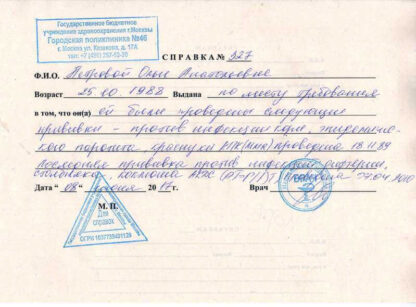 Государственное бюджетное
учреждение здравоохранения г.Москвы
Городская поликлиника №46
г. Москва ул. Казакова, д. 17А
СПРАВКА № 527
Ф.И.О. Петровой Ольге Анатольевне
Возраст 25.10.1988 Выдана по месту требования
в том, что он(а) ей были проведены следующие
прививки – против инфекции кори, эпидемичес-
кого паротита, краснухи проведена 18.11.89
Последняя прививка против инфекции дифтерии,
столбняка, коклюша АКДС 27.04.2010
Дата " 08 " июня 2017г. Врач
М.П.
Для
справок
ОГРН 1037739431129